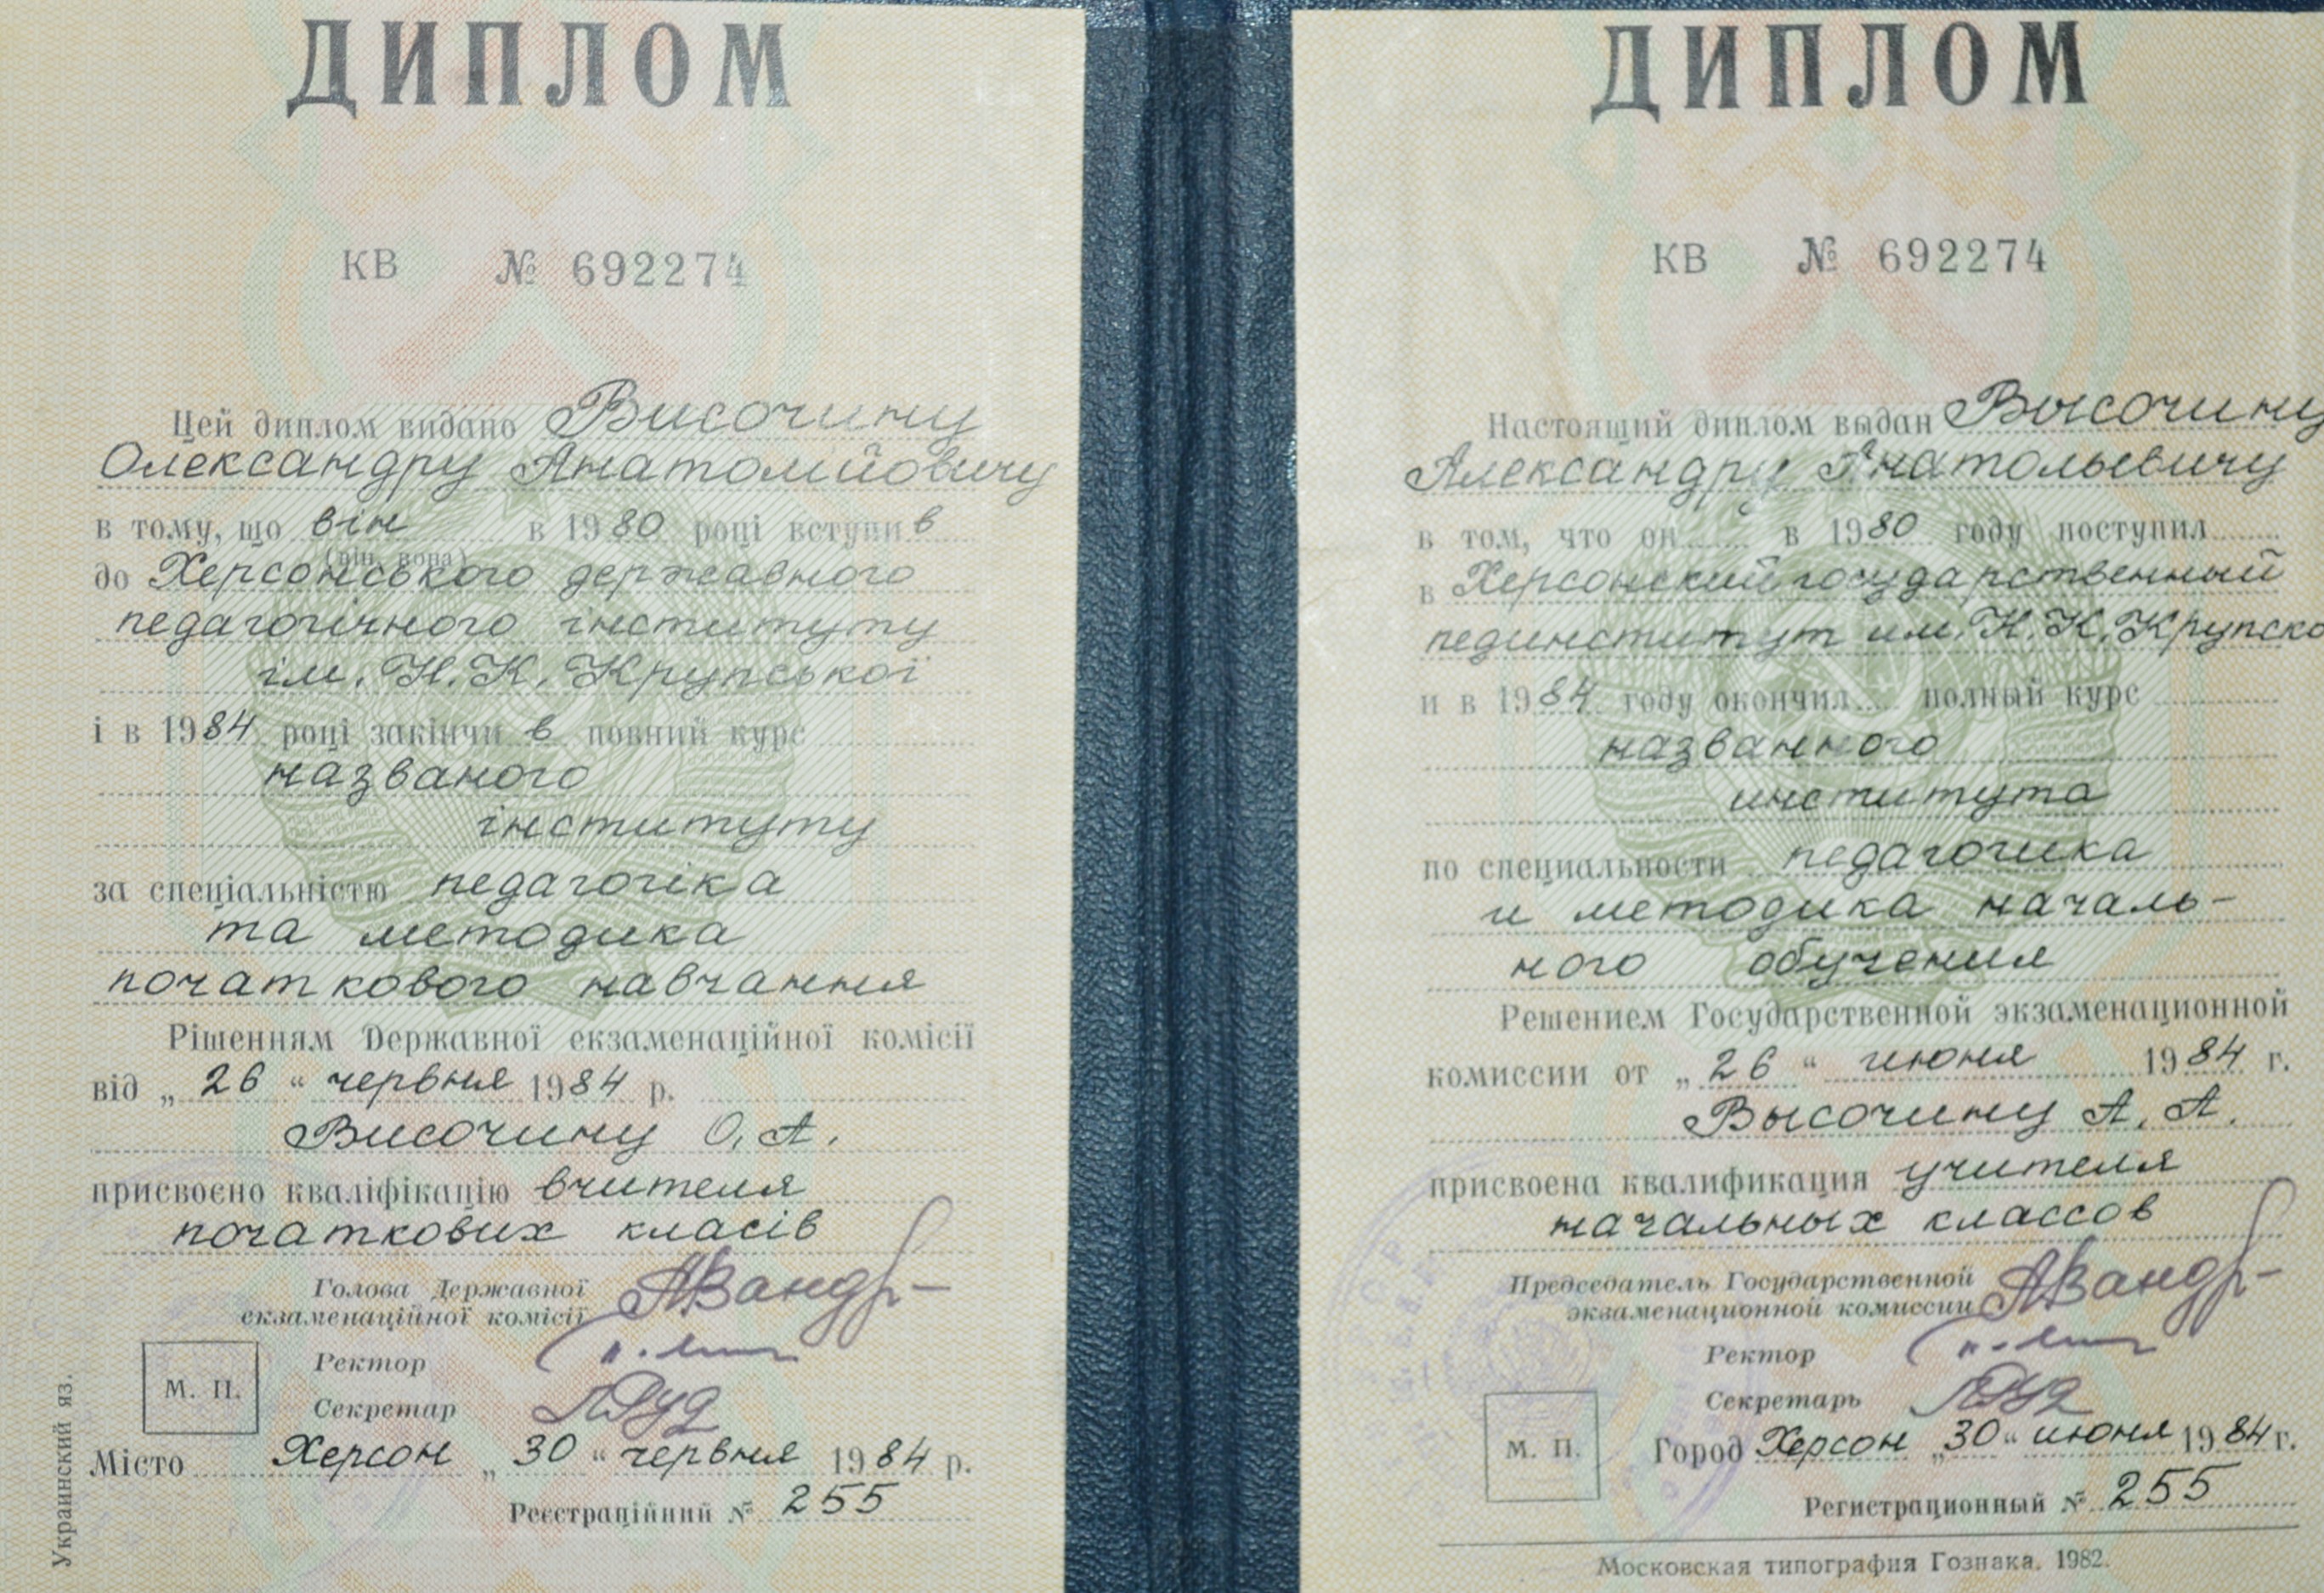 ДИПЛОМ
КВ № 692274
Цей диплом видано Височину
Олександру Анатолійовичу
в тому, що він в 1980 році вступив
(він, вона)
до Херсонського державного
педагогічного інституту
ім. Н.К. Крупської
і в 1984 році закінчив повний курс
названого
інституту
за спеціальністю педагогіка
та методика
початкового навчання
Рішенням Державної екзаменаційної комісії
від „26“ червня 1984 р.
Височину О. А.
присвоєно кваліфікацію вчителя
початкових класів
Голова Державної
екзаменаційної комісії
Ректор
М. П.
Секретар
Місто Херсон „30“ червня 1984 р.
Реєстраційний № 255
Украинский яз.
ДИПЛОМ
КВ № 692274
Настоящий диплом выдан Высочину
Александру Анатольевичу
в том, что он в 1980 году поступил
в Херсонский государственный
пединститут им. Н.К. Крупско
и в 1984 году окончил полный курс
названного
института
по специальности педагогика
и методика началь-
ного обучения
Решением Государственной экзаменационной
комиссии от „26“ июня 1984 г.
Высочину А. А.
присвоена квалификация учителя
начальных классов
Председатель Государственной
экзаменационной комиссии
Ректор
Секретарь
М. П.
Город Херсон „30“ июня 1984 г.
Регистрационный № 255
Московская типография Гознака. 1982.